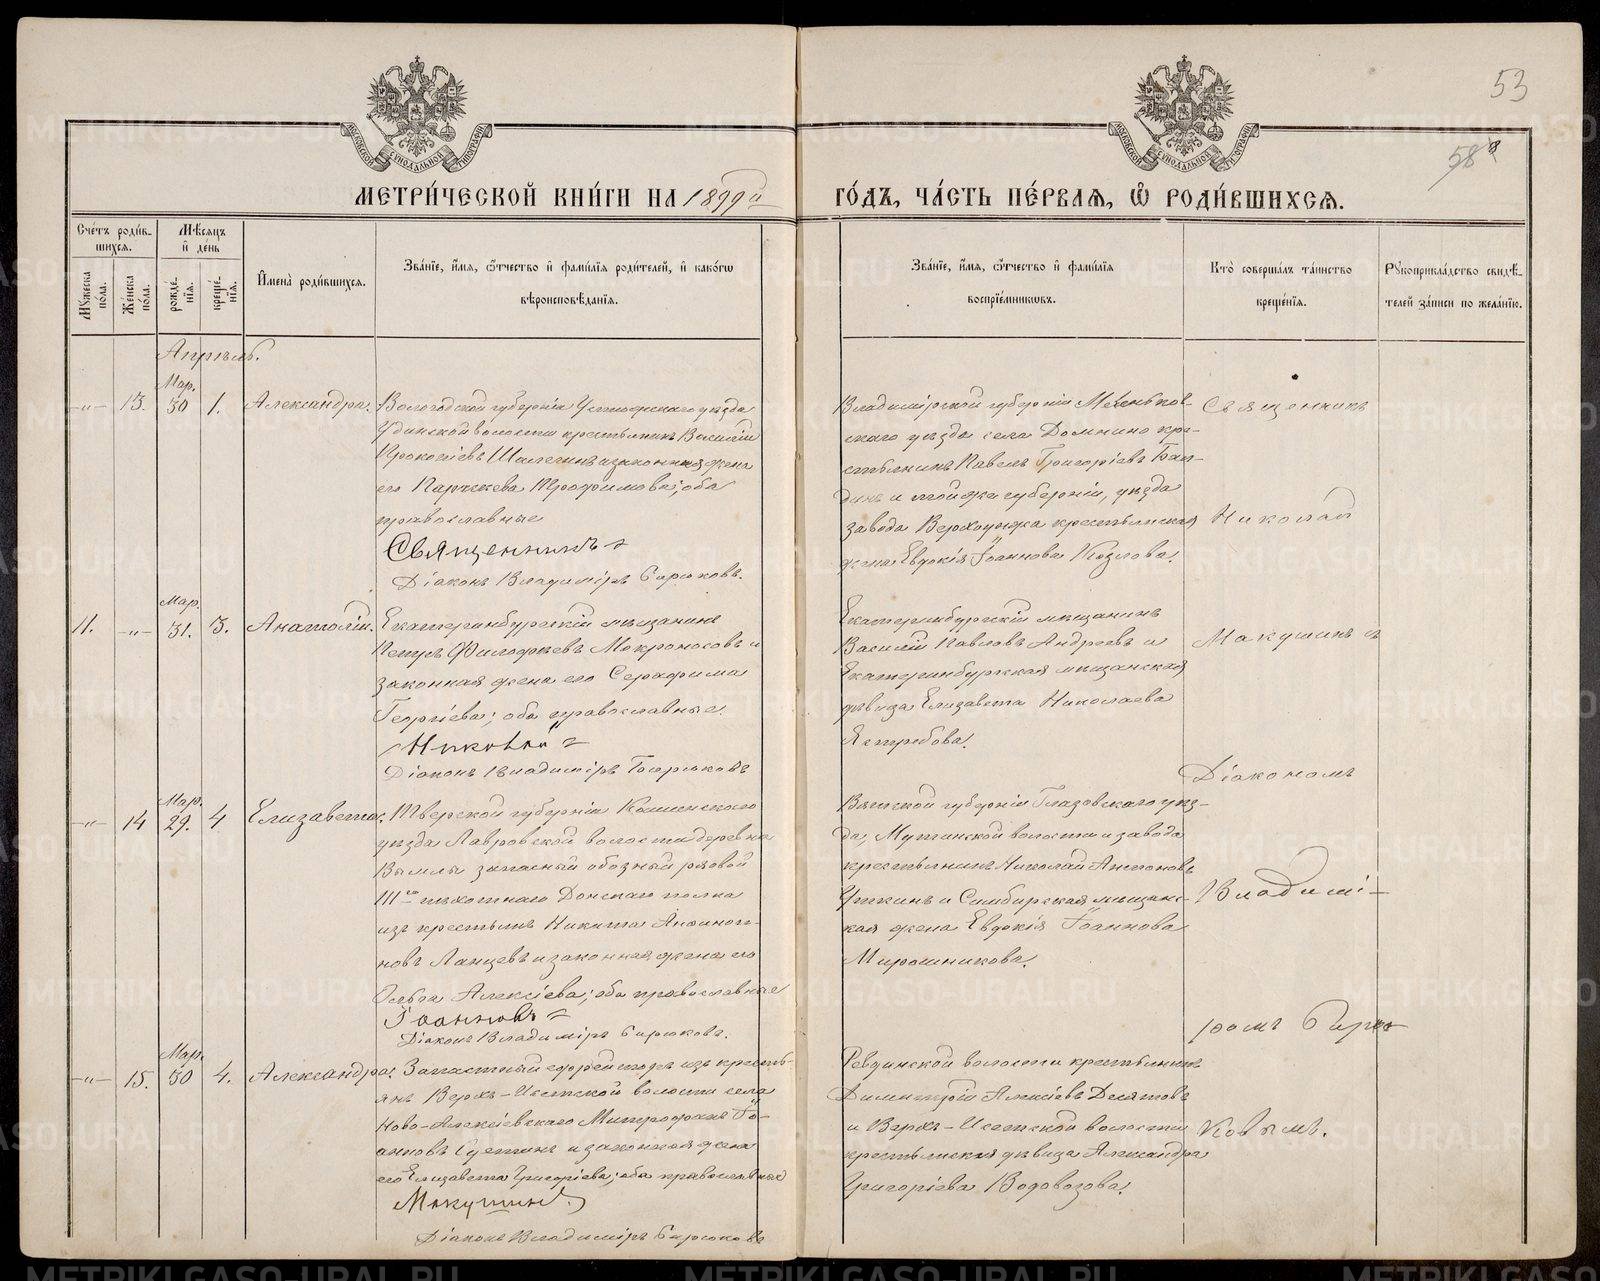 53
58
МОСКОВСКОЙ СУНОДАЛЬНОЙ ТИПОГРАФІИ
МОСКОВСКОЙ СУНОДАЛЬНОЙ ТИПОГРАФІИ
МЕТРИ́ЧЕСКОЙ КНИ́ГИ НА 1899й
ГО́ДЪ, ЧА́СТЬ ПЕ́РВАѦ, Ѡ҆ РОДИ́ВШИХСѦ.
Сче́тъ роди́в-
шихсѧ.
Мѣ́сѧцъ
и҆ де́нь
Мꙋ́жеска
по́ла.
Же́нска
по́ла.
рожде́-
нїѧ.
креще́-
нїѧ.
И҆мена̀ роди́вшихсѧ.
Зва́нїе, и҆́мѧ, ѻ҆́тчество и҆ фами́лїѧ роди́телей, и҆ како́гѡ
вѣроисповѣ́данїѧ.
Зва́нїе, и҆́мѧ, ѻ҆́тчество и҆ фами́лїѧ
воспрїе́мникѡвъ.
Кто̀ соверша́лъ та́инство
креще́нїѧ.
Рꙋкоприкла́дство свидѣ́-
телей за́писи по жела́нїю.
Апрѣль.
Мар.
—„— 13. 30 1. Александра.
Вологодской губерніи Устюжскаго уѣзда
Удимской волости крестьянинъ Василій
Прокопіевъ и законная жена
его Параскева Трофимова; оба
православные
Священникъ
Діаконъ Владиміръ Бирюковъ.
Владимірской губерніи Меленков-
скаго уѣзда села Домнино кре-
стьянинъ Павелъ Григоріевъ Бан-
динъ и той же губерніи, уѣзда
завода Верхоунжа крестьянская
жена Евдокія Іоаннова Козлова.
Священникъ
Николай
Мар.
11. —„— 31. 3. Анатолій.
Екатеринбургскій мѣщанинъ
Петръ Филофеевъ Мокроносовъ и
законная жена его Серафима
Георгіева; оба православные.
Николай
Діаконъ Владиміръ Бирюковъ
Екатеринбургскій мѣщанинъ
Василій Павловъ Андреевъ и
Екатеринбургская мѣщанская
дѣвица Елизавета Николаева
Ястребова.
Макушинъ съ
Діакономъ
Мар.
—„— 14 29. 4 Елизавета.
Тверской губерніи Кашинскаго
уѣзда Лавровской волости деревни
запасный обозный рядовой
III го пѣхотнаго Донскаго полка
изъ крестьянъ Никита
новъ Ланцевъ и законная жена его
Ольга Алексіева; оба православные
Іоанновъ
Діаконъ Владиміръ Бирюковъ.
Вятской губерніи Глазовскаго уѣз-
да, волости и завода
крестьянинъ Николай Антоновъ
Уткинъ и Симбирская мѣщанс-
кая жена Евдокія Іоаннова
Мирошникова.
Владимі-
ромъ Бирю-
Мар.
—„— 15. 30 4. Александра.
Запасный ефрейторъ изъ кресть-
янъ Верхъ-Исетской волости села
Ново-Алексіевскаго Митрофанъ Іо-
анновъ Сметинъ и законная жена
его Елизавета Григоріева; оба православные
Макушинъ.
Діаконъ Владиміръ Бирюковъ
Ревдинской волости крестьянинъ
Димитрій Алексіевъ Десятовъ
и Верхъ-Исетской волости
крестьянская дѣвица Александра
Григоріева Водовозова.
ковымъ.
METRIKI.GASO-URAL.RU